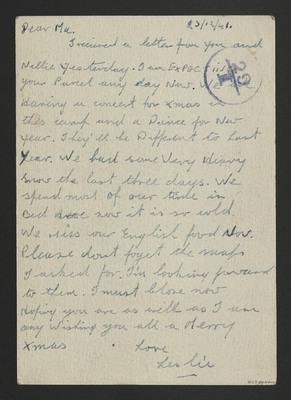 Dear Ma. 23/12/41.
I received a letter from you and
Nellie Yesterday. I am EXPEC
your Parcel any day Now. We
Having a concert for Xmas in
this camp and a Dance for New
Year. They'll be Different to Last
Year. We had some Very Heavy
Snow the last three days. We
spend most of our time in
Bed now it is so cold.
We miss our English food Now.
Please dont foget the snaps
I asked for. I'm looking forward
to them. I must Close now
Hoping you are as well as I am
any Wishing you all a Merry
Xmas. Love
Leslie